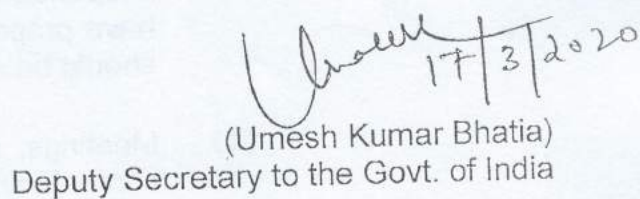 Umesh
17/3/2020
(Umesh Kumar Bhatia)
Deputy Secretary to the Govt. of India